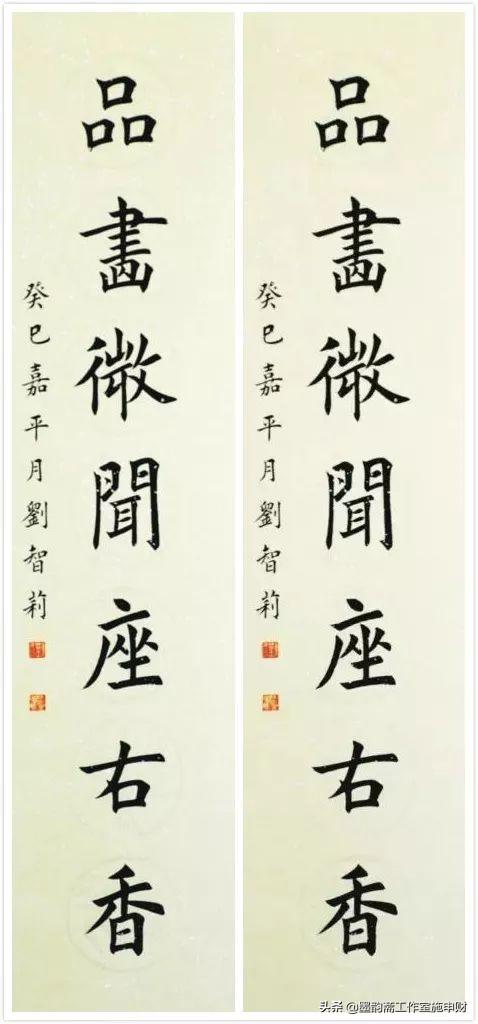 品畵微聞座右香
癸巳嘉平月劉智莉
品畵微聞座右香
癸巳嘉平月劉智莉
头条 @墨韵斋工作室施申财